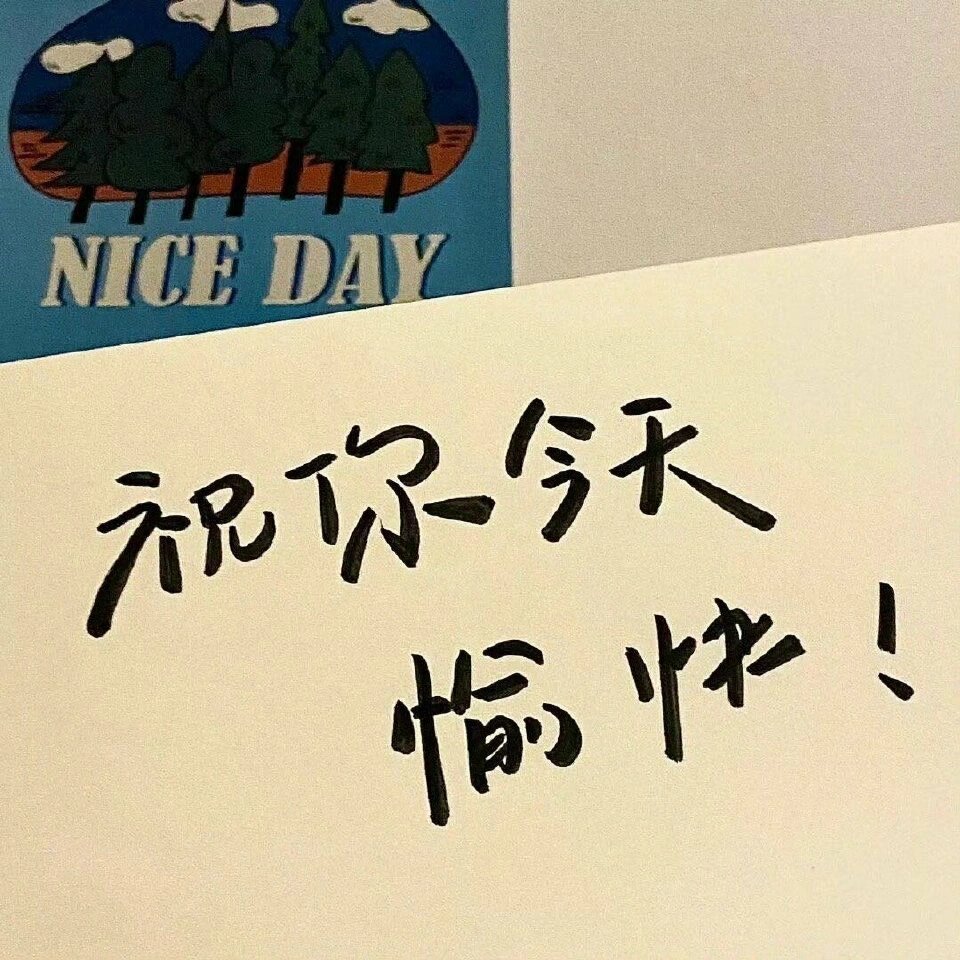 NICE DAY
祝你今天
愉快!